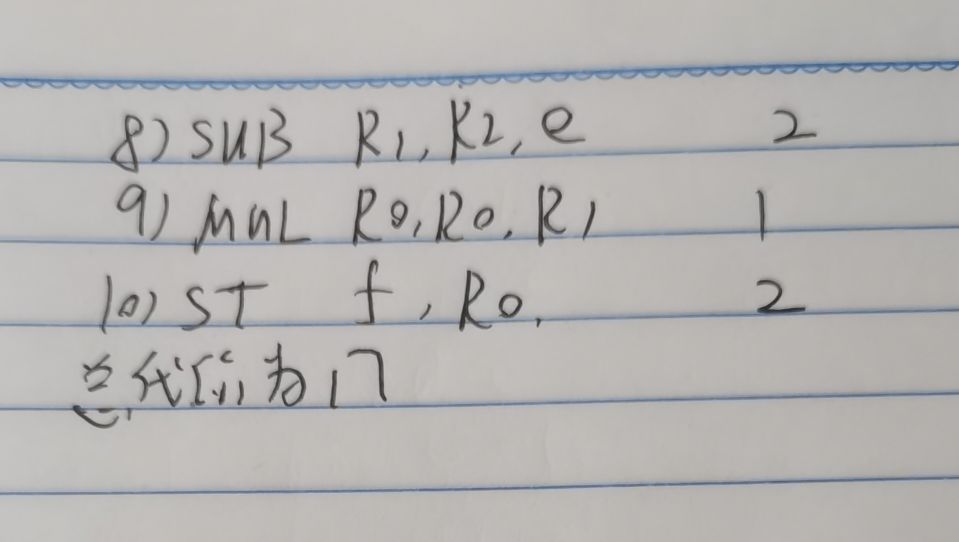 8) SUB R1, R2, e 2
9) MUL R0, R0, R1 1
10) ST f, R0, 2
总代价为17